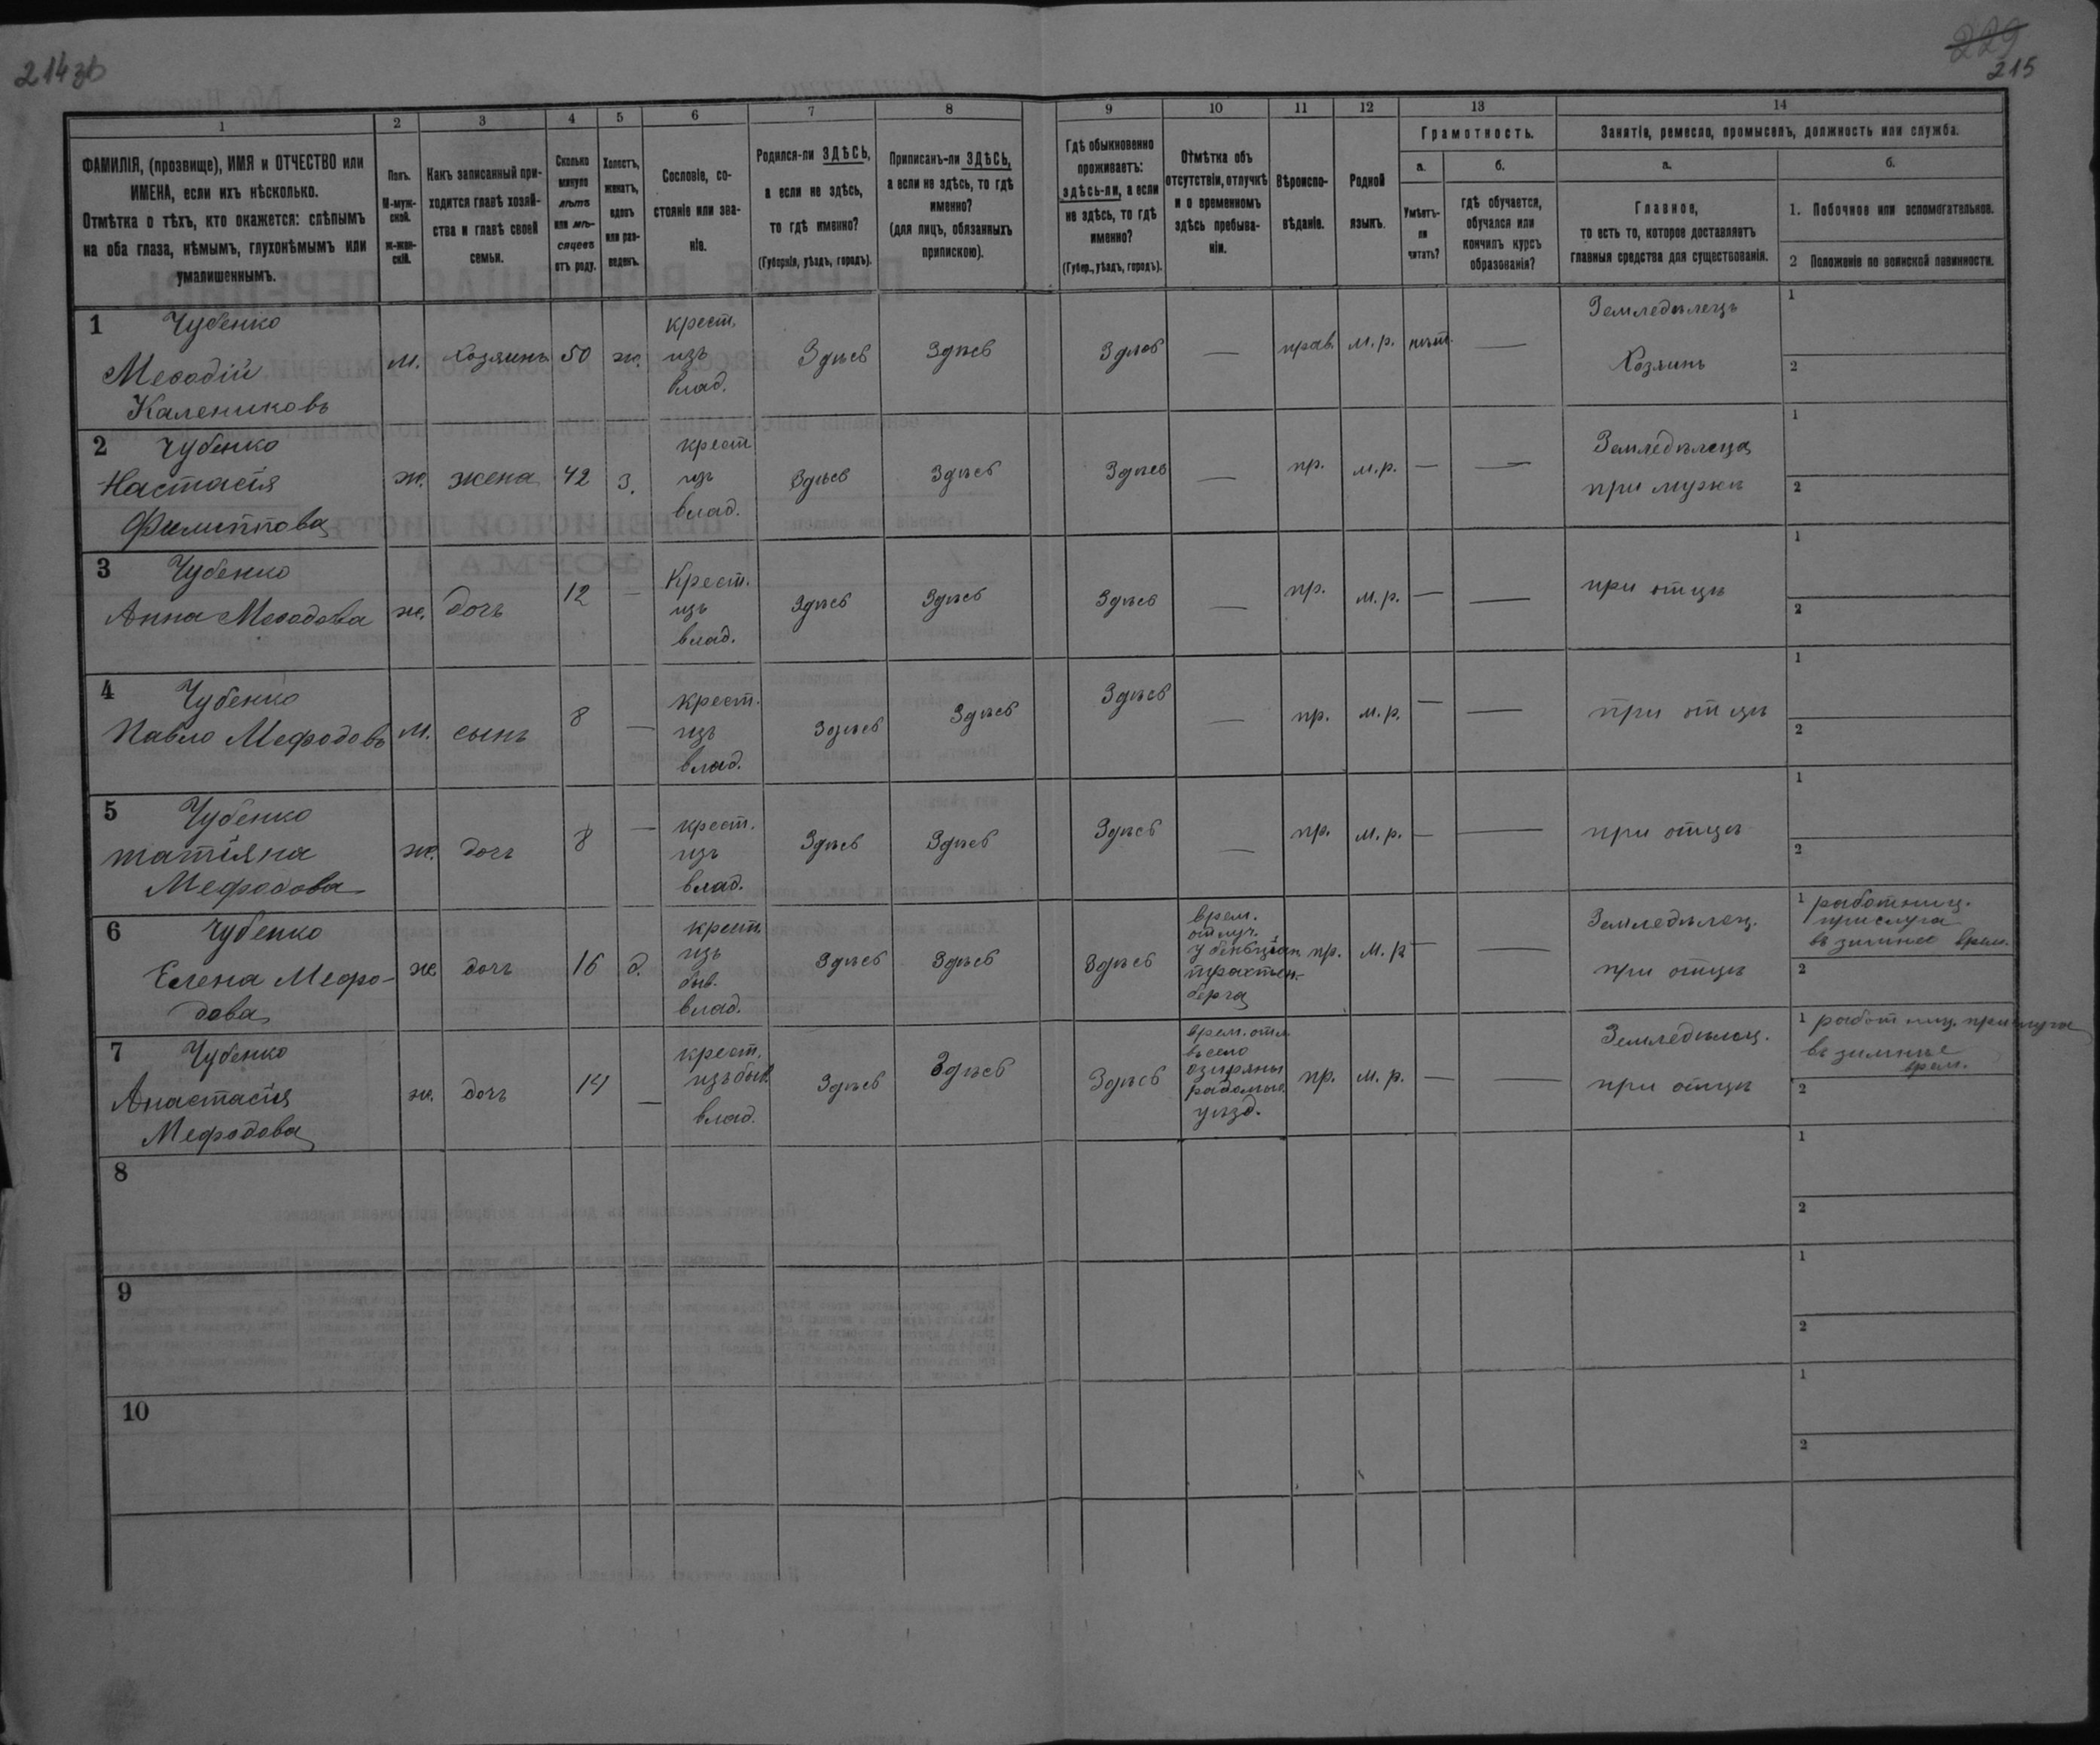 214зв
229
215
1
2
3
4
5
6
7
8
9
10
11
12
13
14
ФАМИЛІЯ, (прозвище), ИМЯ и ОТЧЕСТВО или
ИМЕНА, если ихъ нѣсколько.
Отмѣтка о тѣхъ, кто окажется: слѣпымъ
на оба глаза, нѣмымъ, глухонѣмымъ или
умалишеннымъ.
Полъ.
М-муж-
ской.
ж-жен-
скій.
Какъ записанный при-
ходится главѣ хозяй-
ства и главѣ своей
семьи.
Сколько
минуло
лѣтъ
или мѣ-
сяцевъ
отъ роду.
Холостъ,
женатъ,
вдовъ
или раз-
веденъ.
Сословіе, со-
стояніе или зва-
ніе.
Родился-ли ЗДѢСЬ,
а если не здѣсь,
то гдѣ именно?
(Губернія, уѣздъ, городъ).
Приписанъ-ли ЗДѢСЬ,
а если не здѣсь, то гдѣ
именно?
(для лицъ, обязанныхъ
припискою).
Гдѣ обыкновенно
проживаетъ:
здѣсь-ли, а если
не здѣсь, то гдѣ
именно?
(Губер., уѣздъ, городъ).
Отмѣтка объ
отсутствіи, отлучкѣ
и о временномъ
здѣсь пребыва-
ніи.
Вѣроиспо-
вѣданіе.
Родной
языкъ.
Грамотность.
а.
Умѣетъ-
ли
читать?
б.
гдѣ обучается,
обучался или
кончилъ курсъ
образованія?
Занятіе, ремесло, промыселъ, должность или служба.
а.
Главное,
то есть то, которое доставляетъ
главныя средства для существованія.
б.
1. Побочное или вспомогательное.
2 Положеніе по воинской повинности.
1 Чубенко
Меѳодій
Калениковъ
м. Хозяинъ 50 ж.
крест.
изъ
влад.
Здѣсь Здѣсь Здѣсь — прав. м. р. нѣт. —
Земледѣлецъ
Хозяинъ
1
2
2 Чубенко
Настасія
Филиппова
ж. жена 42 з.
крест
изъ
влад.
Здѣсь Здѣсь Здѣсь — пр. м. р. — —
Земледѣлица
при мужѣ
1
2
3 Чубенко
Анна Меѳодова
ж. дочь 12 —
Крест.
изъ
влад.
Здѣсь Здѣсь Здѣсь — пр. м. р. — —
при отцѣ
1
2
4 Чубенко
Павло Мефодовъ
м. сынъ 8 —
крест.
изъ
влад.
Здѣсь Здѣсь Здѣсь — пр. м. р. — —
при отцѣ
1
2
5 Чубенко
татіяна
Мефодова
ж. дочь 8 —
крест.
изъ
влад.
Здѣсь Здѣсь Здѣсь — пр. м. р. — —
при отцѣ
1
2
6 Чубенко
Елена Мефо-
дова
ж дочь 16 д.
крест.
изъ
быв.
влад.
Здѣсь Здѣсь Здѣсь
врем.
отлуч.
у
берга
пр. м. р — —
Земледѣлец.
при отцѣ
1 работниц.
прислуга
въ зимнее врем.
2
7 Чубенко
Анастасія
Мефодова
ж. дочь 14 —
крест.
изъ быв
влад.
Здѣсь Здѣсь Здѣсь
врем. отл.
въ село
озиряны
радомыс.
уѣзд.
пр. м. р. — —
Земледѣлец.
при отцѣ
1 работниц. прислуга
въ зимнее
врем.
2
8
1
2
9
1
2
10
1
2